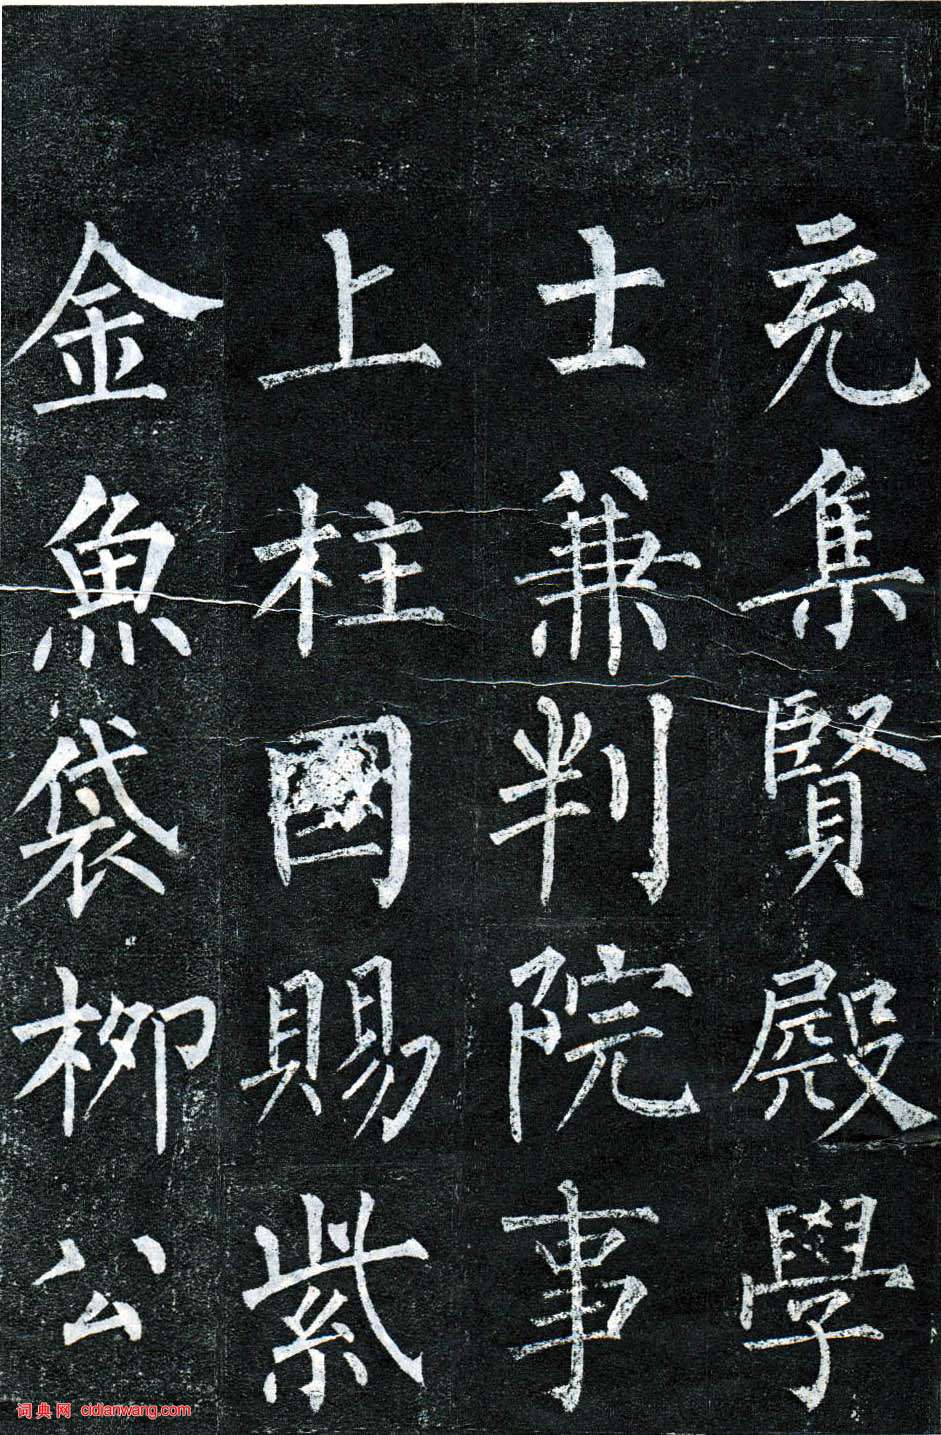 充集賢殿學
士兼判院事
上柱國賜紫
金魚袋柳公
词典网 cidianwang.com